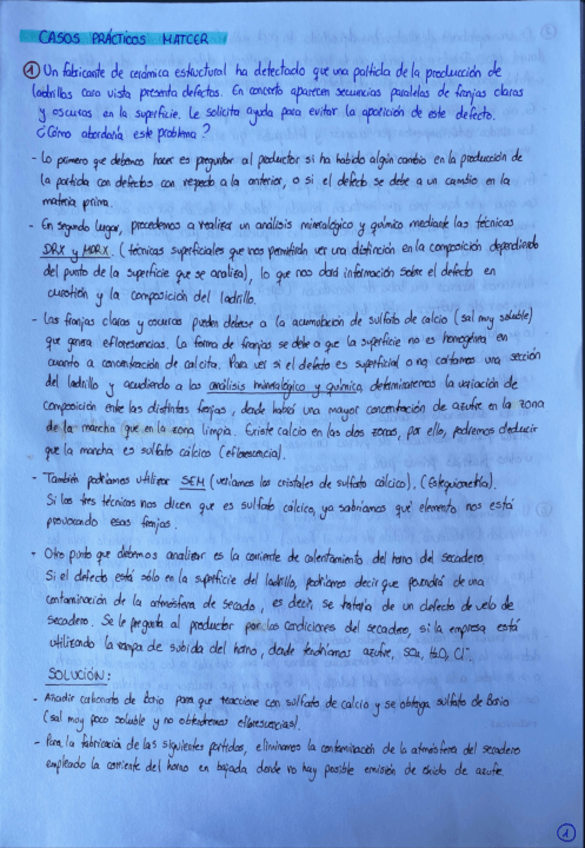 CASOS PRÁCTICOS MATCER
① Un fabricante de cerámica estructural ha detectado que una partida de la producción de
ladrillos cara vista presenta defectos. En concreto aparecen secuencias paralelas de franjas claras
y oscuras en la superficie. Le solicita ayuda para evitar la aparición de este defecto.
¿Cómo abordaría este problema?
- Lo primero que debemos hacer es preguntar al productor si ha habido algún cambio en la producción de
la partida con defectos con respecto a la anterior, o si el defecto se debe a un cambio en la
materia prima.
- En segundo lugar, procedemos a realizar un análisis mineralógico y químico mediante las técnicas
DRX y MDRX. (técnicas superficiales que nos permitirán ver una distinción en la composición dependiendo
del punto de la superficie que se analiza), lo que nos dará información sobre el defecto en
cuestión y la composición del ladrillo.
- Las franjas claras y oscuras pueden deberse a la acumulación de sulfato de calcio (sal muy soluble)
que genera eflorescencias. La forma de franjas se debe a que la superficie no es homogénea en
cuanto a concentración de calcita. Para ver si el defecto es superficial o no, cortamos una sección
del ladrillo y acudiendo a los análisis mineralógico y químico, determinaremos la variación de
composición entre las distintas franjas, donde habrá una mayor concentración de azufre en la zona
de la mancha que en la zona limpia. Existe calcio en las dos zonas, por ello, podremos deducir
que la mancha es sulfato cálcico (eflorescencia).
- También podríamos utilizar SEM (veríamos los cristales de sulfato cálcico). (Estequiometría).
Si las tres técnicas nos dicen que es sulfato cálcico, ya sabríamos qué elemento nos está
provocando esas franjas.
- Otro punto que debemos analizar es la corriente de calentamiento del horno del secadero
Si el defecto está sólo en la superficie del ladrillo, podríamos decir que provendrá de una
contaminación de la atmósfera de secado, es decir, se trataría de un defecto de velo de
secadero. Se le pregunta al productor por las condiciones del secadero, si la empresa está
utilizando la rampa de subida del horno, donde tendríamos azufre, SO₄, H₂O, Cl⁻.
SOLUCIÓN:
- Añadir carbonato de Bario para que reaccione con sulfato de calcio y se obtenga sulfato de Bario
(sal muy poco soluble y no obtendremos eflorescencias).
- Para la fabricación de las siguientes partidas, eliminamos la contaminación de la atmósfera del secadero
empleando la corriente del horno en bajada donde no hay posible emisión de óxido de azufre.
1